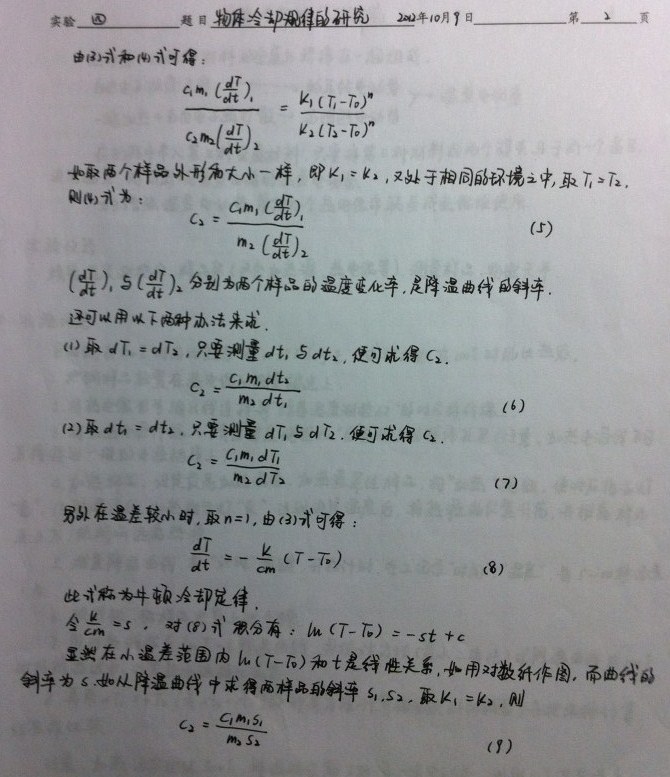 实验 四 题目 物体冷却规律的研究 2012年10月9日 第 2 页
由(3)式和(4)式可得:
\frac{c_1m_1(\frac{dT}{dt})_1}{c_2m_2(\frac{dT}{dt})_2} = \frac{K_1(T_1-T_0)^n}{K_2(T_2-T_0)^n}
如取两个样品外形和大小一样,即K_1=K_2,又处于相同的环境之中,取T_1=T_2.
则(4)式为:
c_2 = \frac{c_1m_1(\frac{dT}{dt})_1}{m_2(\frac{dT}{dt})_2} (5)
(\frac{dT}{dt})_1与(\frac{dT}{dt})_2分别为两个样品的温度变化率,是降温曲线的斜率.
还可以用以下两种办法来求.
(1)取dT_1=dT_2,只要测量dt_1与dt_2,便可求得C_2.
c_2 = \frac{c_1m_1dt_2}{m_2dt_1} (6)
(2)取dt_1=dt_2,只要测量dT_1与dT_2,便可求得C_2.
c_2 = \frac{c_1m_1dT_1}{m_2dT_2} (7)
另外在温差较小时,取n=1,由(3)式可得:
\frac{dT}{dt} = -\frac{k}{cm}(T-T_0) (8)
此式称为牛顿冷却定律.
令\frac{k}{cm}=s,对(8)式积分有:ln(T-T_0)=-st+c
显然在小温差范围内ln(T-T_0)和t是线性关系,如用对数纸作图,而曲线的
斜率为s.如从降温曲线中求得两样品的斜率s_1,s_2,取K_1=K_2,则
c_2 = \frac{c_1m_1s_1}{m_2s_2} (9)